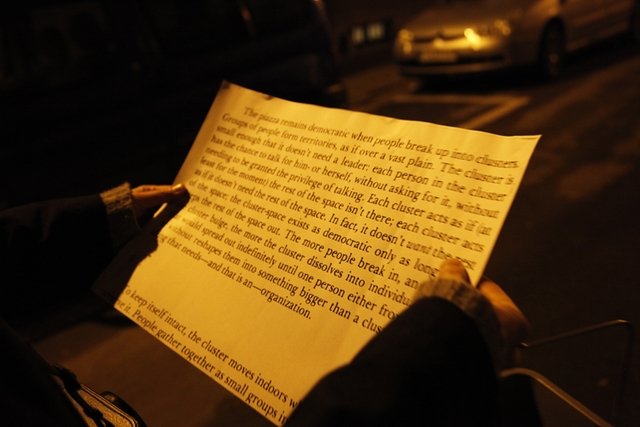 The piazza remains democratic when people break up into clusters.
Groups of people form territories, as if over a vast plain. The cluster is
small enough that it doesn't need a leader: each person in the cluster
has the chance to talk for him- or herself, without asking for it, without
needing to be granted the privilege of talking. Each cluster acts as if (at
least for the moment) the rest of the space isn't there; each cluster acts
as if it doesn't need the rest of the space. In fact, it doesn't want the rest
of the space; the cluster-space exists as democratic only as long
the rest of the space out. The more people break in, an
cluster bulge, the more the cluster dissolves into individu
would spread out indefinitely until one person either fro
without reshapes them into something bigger than a clus
that needs—and that is an—organization.
To keep itself intact, the cluster moves indoors w
it. People gather together as small groups in